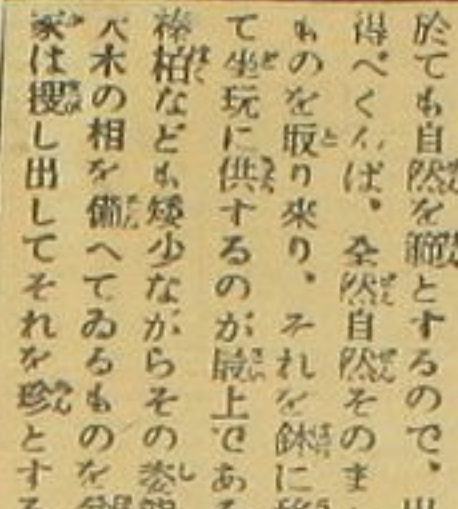 於ても自然を師とするので、
得べくんば、全然自然そのま
ものを取り來り、それを鉢に
て坐玩に供するのが最上であ
柏なども矮少ながらその姿
大木の相を備へてゐるものを
家は捜し出してそれを珍とす